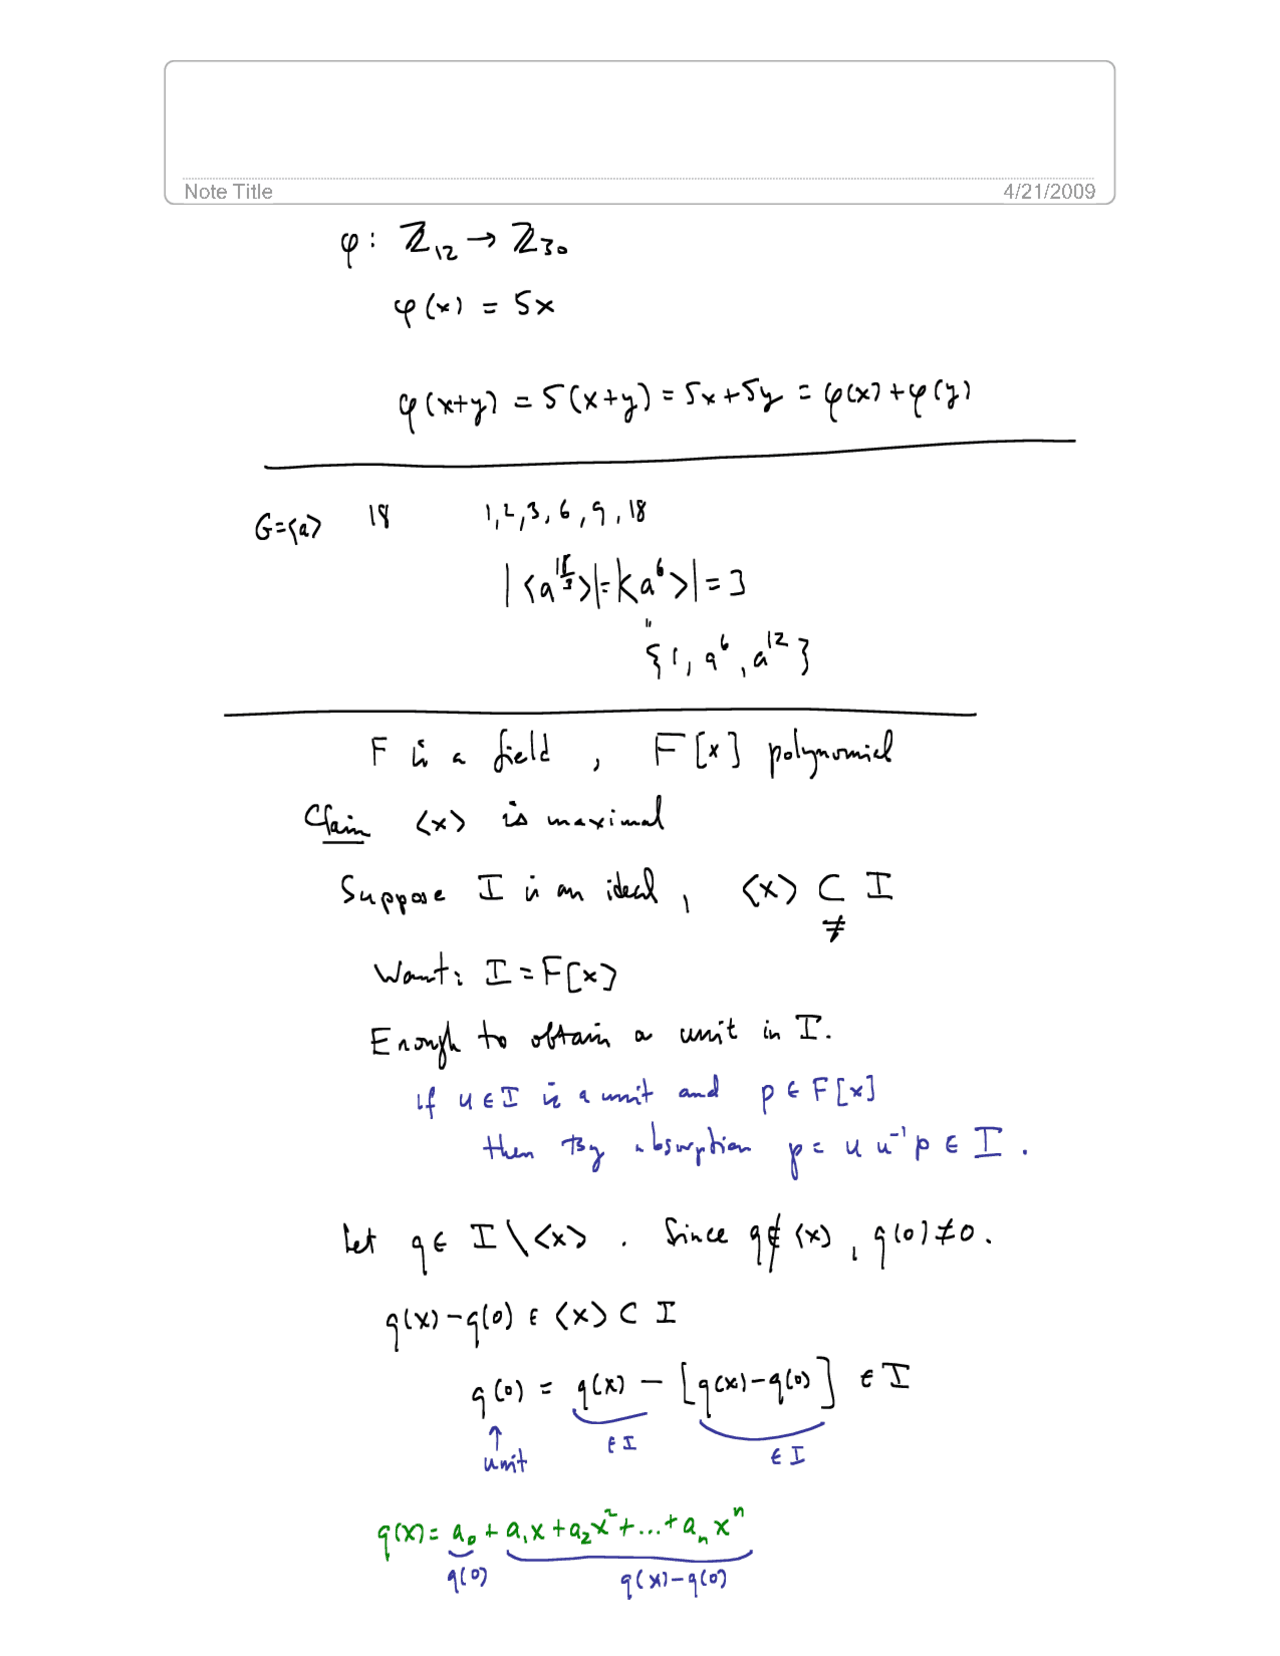 Note Title 4/21/2009
φ: ℤ₁₂ → ℤ₃₀
φ(x) = 5x
φ(x+y) = 5(x+y) = 5x+5y = φ(x)+φ(y)
G=<a> 18 1,2,3,6,9,18
|<a^{18/3}>|=|<a⁶>|=3
"
{1, a⁶, a¹²}
F is a field, F[x] polynomial
Claim <x> is maximal
Suppose I is an ideal, <x> ⊂ I
≠
Want: I=F[x]
Enough to obtain a unit in I.
if u∈I is a unit and p∈F[x]
then By absorption p= u u⁻¹p ∈ I.
Let q∈ I\<x>. Since q∉<x>, q(0)≠0.
q(x)-q(0) ∈ <x> ⊂ I
q(0) = q(x) - [q(x)-q(0)] ∈ I
↑ ∈I ∈I
unit
q(x)= a₀ + a₁x+a₂x²+...+aₙxⁿ
q(0) q(x)-q(0)